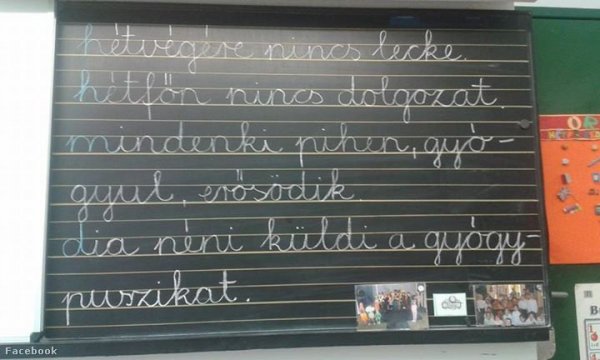 hétvégére nincs lecke.
hétfőn nincs dolgozat.
mindenki pihen, gyó-
gyul, erősödik.
dia néni küldi a gyógy-
puszikat.
Facebook